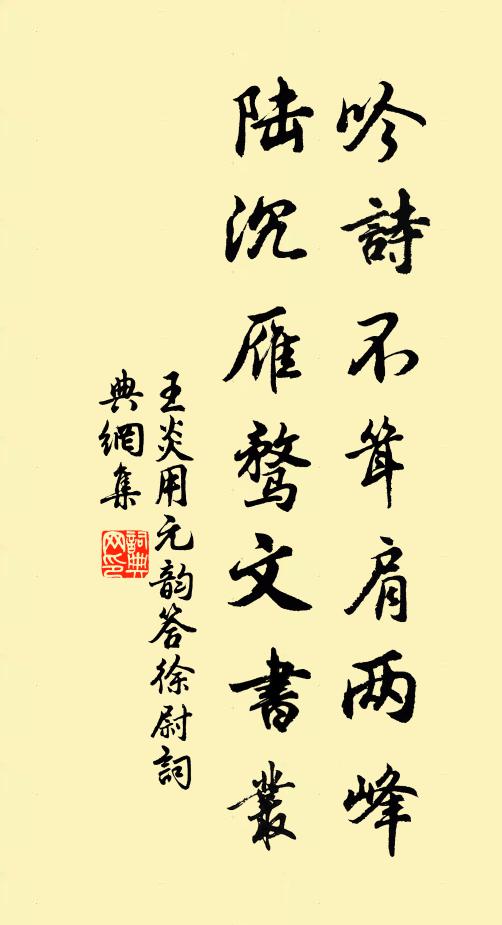 吟詩不耸肩两峰
陆沉雁鹜文書叢
王炎用元韵答徐尉詞
典網集
詞典网印